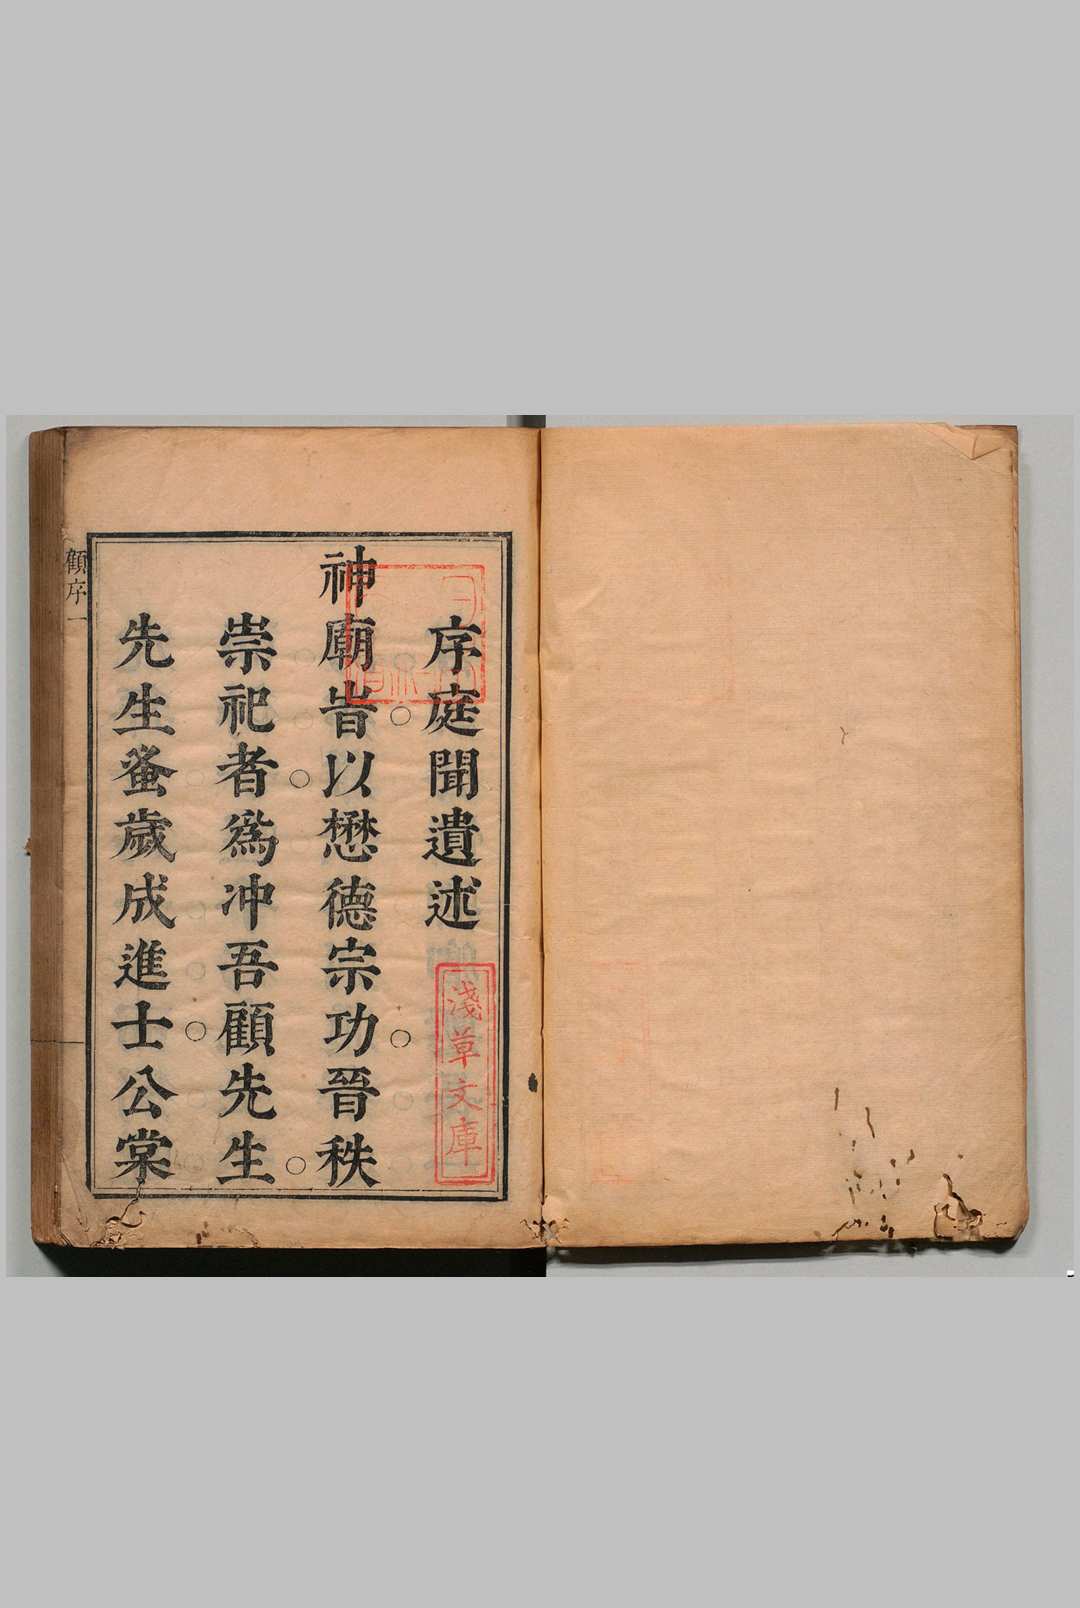 序庭聞遺述
神廟旹以懋德宗功晉秩
崇祀者爲冲吾顧先生
先生蚤歲成進士公棠
顧序 一
淺草文庫